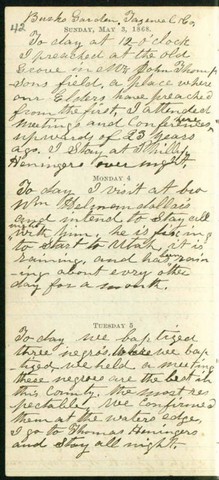 42 Burks Garden, Tazewel Co,
SUNDAY, MAY 3, 1868.
To day at 12 o'clock
I preached at the old
Grove in Mr John Thomp
sons field, a place where
our Elders have preached
from the first, I attended
meetings and Conferences, here
upwards of 23 years
ago. I Stay at Phillip
Heningers over night.
MONDAY 4
To day I visit at bro
Wm Delmon
and intend to Stay all
night with him, he is fixing
to Start to Utah, it is
raining, and has been rain
ing about evry other
day for a month.
TUESDAY 5
To day wee baptized
three negros, wee bap
tized, we held a meeting
these negroes are the best in
this County, the most res
pectable. We confirmed
them at the waters edge,
I go to Thomas Heningers
and Stay all night.